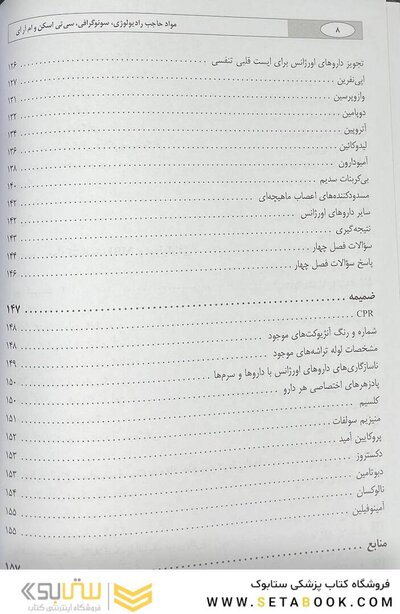 ۸ مواد حاجب رادیولوژی، سونوگرافی، سی‌تی اسکن و ام آر ای
تجویز داروهای اورژانس برای ایست قلبی تنفسی ۱۲۶
اپی‌نفرین ۱۲۷
وازوپرسین ۱۳۱
دوپامین ۱۳۲
آتروپین ۱۳۴
لیدوکائین ۱۳۶
آمیودارون ۱۳۸
بی‌کربنات سدیم ۱۴۰
مسدودکننده‌های اعصاب ماهیچه‌ای ۱۴۲
سایر داروهای اورژانس ۱۴۲
نتیجه‌گیری ۱۴۳
سؤالات فصل چهار ۱۴۴
پاسخ سؤالات فصل چهار ۱۴۶
ضمیمه ۱۴۷
CPR ۱۴۸
شماره و رنگ آنژیوکت‌های موجود ۱۴۸
مشخصات لوله تراشه‌های موجود ۱۴۹
ناسازگاری‌های داروهای اورژانس با داروها و سرم‌ها ۱۵۰
پادزهرهای اختصاصی هر دارو ۱۵۰
کلسیم ۱۵۱
منیزیم سولفات ۱۵۲
پروکایین آمید ۱۵۳
دکستروز ۱۵۳
دبوتامین ۱۵۴
نالوکسان ۱۵۵
آمینوفیلین ۱۵۵
منابع ۱۵۷
فروشگاه کتاب پزشکی ستابوک
WWW.SETABOOK.COM
ستابوک
فروشگاه اینترنتی کتاب